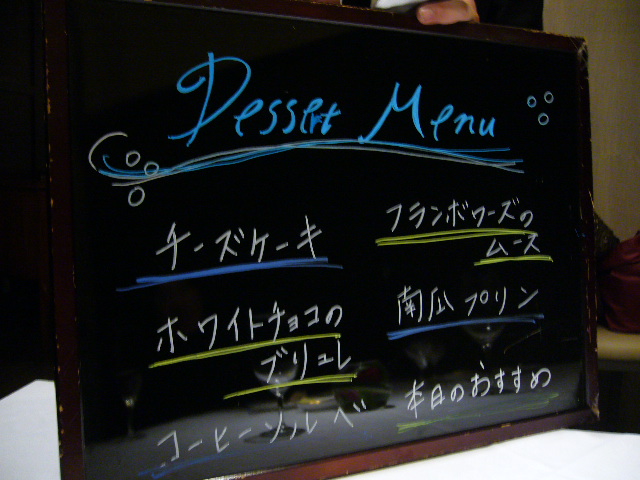 Dessert Menu
チーズケーキ
ホワイトチョコの
ブリュレ
コーヒーソルベ
フランボワーズの
ムース
南瓜プリン
本日のおすすめ